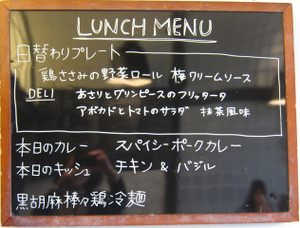 LUNCH MENU
日替わりプレート
鶏ささみの野菜ロール 梅クリームソース
DELI あさりとグリンピースのフリッタータ
アボカドとトマトのサラダ 抹茶風味
本日のカレー スパイシーポークカレー
本日のキッシュ チキン & バジル
黒胡麻棒々鶏冷麺